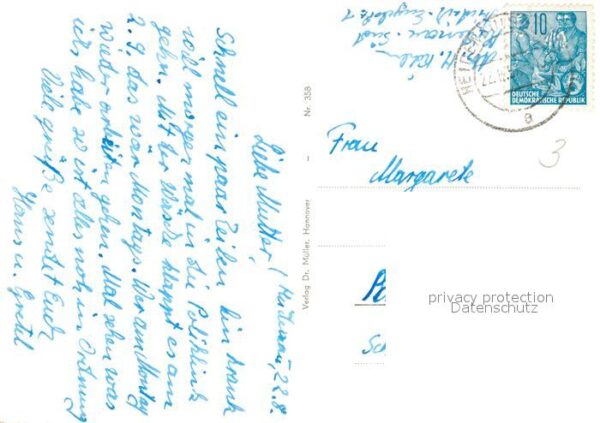 Liebe Mutter!
22.8.
Schnell ein paar Zeilen bin krank
will morgen mal in die Poliklinik
gehn. Mit der Wäsche klappt es am
2.9. das wär Montags. War am Montag
wieder arbeiten gehen. Mal sehen was
ich habe so ist alles noch in Ordnung
Viele grüße sendet Euch
Hans u. Gretel
Verlag Dr. Müller, Hannover – Nr. 358
10
DEUTSCHE
DEMOKRATISCHE REPUBLIK
a
3
Frau
Margarete
privacy protection
Datenschutz